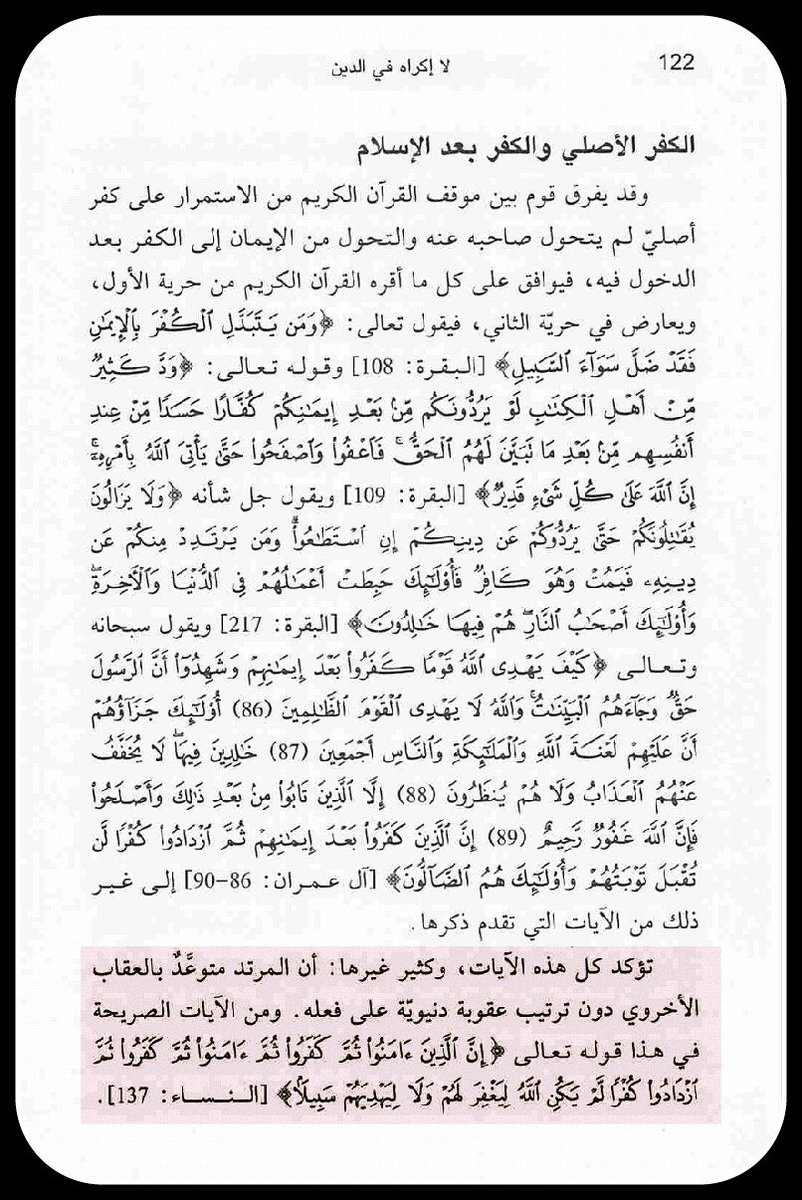 122
لا إكراه في الدين
الكفر الأصلي والكفر بعد الإسلام
وقد يفرق قوم بين موقف القرآن الكريم من الاستمرار على كفر
أصليّ لم يتحول صاحبه عنه والتحول من الإيمان إلى الكفر بعد
الدخول فيه، فيوافق على كل ما أقره القرآن الكريم من حرية الأول،
ويعارض في حريّة الثاني، فيقول تعالى: ﴿وَمَن يَتَبَدَّلِ ٱلْكُفْرَ بِٱلْإِيمَٰنِ
فَقَدْ ضَلَّ سَوَآءَ ٱلسَّبِيلِ﴾ [البقرة: 108] وقوله تعالى: ﴿وَدَّ كَثِيرٌ
مِّنْ أَهْلِ ٱلْكِتَٰبِ لَوْ يَرُدُّونَكُم مِّنۢ بَعْدِ إِيمَٰنِكُمْ كُفَّارًا حَسَدًا مِّنْ عِندِ
أَنفُسِهِم مِّنۢ بَعْدِ مَا تَبَيَّنَ لَهُمُ ٱلْحَقُّ ۖ فَٱعْفُوا۟ وَٱصْفَحُوا۟ حَتَّىٰ يَأْتِىَ ٱللَّهُ بِأَمْرِهِۦٓ ۗ
إِنَّ ٱللَّهَ عَلَىٰ كُلِّ شَىْءٍ قَدِيرٌ﴾ [البقرة: 109] ويقول جل شأنه ﴿وَلَا يَزَالُونَ
يُقَٰتِلُونَكُمْ حَتَّىٰ يَرُدُّوكُمْ عَن دِينِكُمْ إِنِ ٱسْتَطَٰعُوا۟ ۚ وَمَن يَرْتَدِدْ مِنكُمْ عَن
دِينِهِۦ فَيَمُتْ وَهُوَ كَافِرٌ فَأُو۟لَٰٓئِكَ حَبِطَتْ أَعْمَٰلُهُمْ فِى ٱلدُّنْيَا وَٱلْءَاخِرَةِ ۖ
وَأُو۟لَٰٓئِكَ أَصْحَٰبُ ٱلنَّارِ ۖ هُمْ فِيهَا خَٰلِدُونَ﴾ [البقرة: 217] ويقول سبحانه
وتعالى ﴿كَيْفَ يَهْدِى ٱللَّهُ قَوْمًا كَفَرُوا۟ بَعْدَ إِيمَٰنِهِمْ وَشَهِدُوٓا۟ أَنَّ ٱلرَّسُولَ
حَقٌّ وَجَآءَهُمُ ٱلْبَيِّنَٰتُ ۚ وَٱللَّهُ لَا يَهْدِى ٱلْقَوْمَ ٱلظَّٰلِمِينَ (86) أُو۟لَٰٓئِكَ جَزَآؤُهُمْ
أَنَّ عَلَيْهِمْ لَعْنَةَ ٱللَّهِ وَٱلْمَلَٰٓئِكَةِ وَٱلنَّاسِ أَجْمَعِينَ (87) خَٰلِدِينَ فِيهَا ۖ لَا يُخَفَّفُ
عَنْهُمُ ٱلْعَذَابُ وَلَا هُمْ يُنظَرُونَ (88) إِلَّا ٱلَّذِينَ تَابُوا۟ مِنۢ بَعْدِ ذَٰلِكَ وَأَصْلَحُوا۟
فَإِنَّ ٱللَّهَ غَفُورٌ رَّحِيمٌ (89) إِنَّ ٱلَّذِينَ كَفَرُوا۟ بَعْدَ إِيمَٰنِهِمْ ثُمَّ ٱزْدَادُوا۟ كُفْرًا لَّن
تُقْبَلَ تَوْبَتُهُمْ وَأُو۟لَٰٓئِكَ هُمُ ٱلضَّآلُّونَ﴾ [آل عمران: 86-90] إلى غير
ذلك من الآيات التي تقدم ذكرها.
تؤكد كل هذه الآيات، وكثير غيرها: أن المرتد متوعَّدٌ بالعقاب
الأخروي دون ترتيب عقوبة دنيويّة على فعله. ومن الآيات الصريحة
في هذا قوله تعالى ﴿إِنَّ ٱلَّذِينَ ءَامَنُوا۟ ثُمَّ كَفَرُوا۟ ثُمَّ ءَامَنُوا۟ ثُمَّ كَفَرُوا۟ ثُمَّ
ٱزْدَادُوا۟ كُفْرًا لَّمْ يَكُنِ ٱللَّهُ لِيَغْفِرَ لَهُمْ وَلَا لِيَهْدِيَهُمْ سَبِيلًۢا﴾ [النساء: 137].